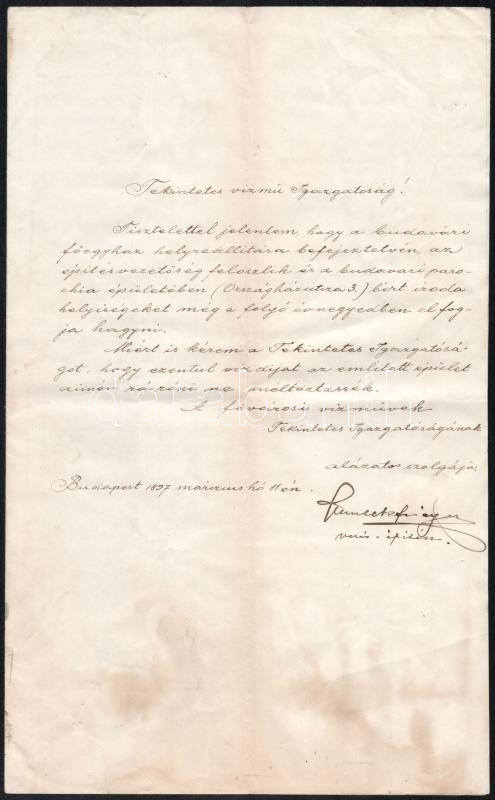 Tekintetes vizmű Igazgatóság!
Tisztelettel jelentem, hogy a budavári
főegyház helyreállitára befejeztetvén, az
épitésvezetőség feloszlik és a budavári paro-
chia épületében (Országházutza 3.) birt iroda
helyiségeket még a folyó évnegyedben el fog-
ja hagyni.
Miért is kérem a Tekintetes Igazgatósá-
got, hogy ezentul viz dijat az emlitett épület
czimén róvni ne méltóztassék.
A fővárosi vizművek
Tekintetes Igazgatóságának
alázatos szolgája
Budapest 1897 márczius hó 11 én.